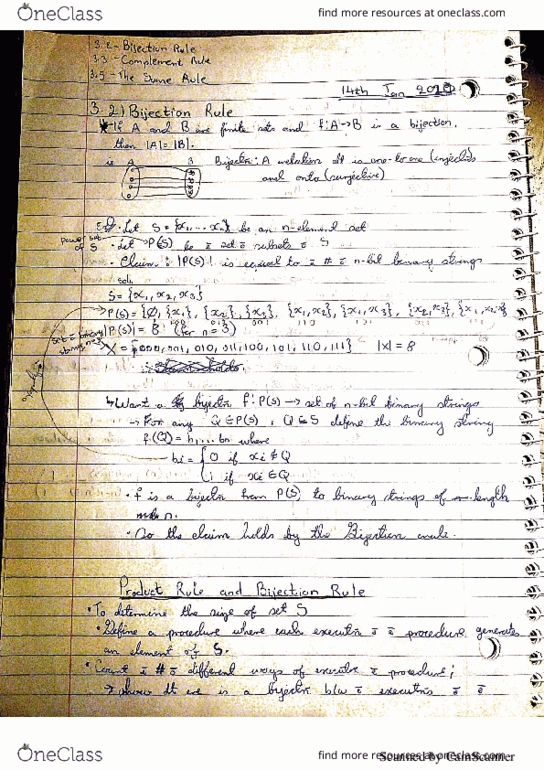 OneClass
find more resources at oneclass.com
3.2 - Bijection Rule
3.3 - Complement Rule
3.5 - The Sum Rule
14th Jan
3.2) Bijection Rule
If A and B are finite sets and f: A→B is a bijection,
then |A| = |B|.
A B Bijection: A relation tt is one-to-one (injective)
and onto (surjective)
Eg. Let S = {x₁, ... xₙ} be an n-element set
power set of S
Let P(S) be set subsets S
Claim: |P(S)| is equal to # n-bit binary strings
S = {x₁, x₂, x₃}
P(S) = {∅, {x₁}, {x₂}, {x₃}, {x₁, x₂}, {x₁, x₃}, {x₂, x₃}, {x₁, x₂, x₃}
|P(S)| = 8 (for n = 3)
X = {000, 001, 010, 011, 100, 101, 110, 111} |X| = 8
↳ Want a bijection f: P(S) → set of n-bit binary strings
→ For any Q ∈ P(S), Q ⊆ S define the binary string
f(Q) = b₁ ... bn where
bi = { 0 if xi ∉ Q
1 if xi ∈ Q
• f is a bijection from P(S) to binary strings of length
n.
• So the claim holds by the Bijection rule.
Product Rule and Bijection Rule
• To determine the size of set S
• Define a procedure where each execution procedure generates
an element of S.
• Count # different ways of execute procedure;
→ show tt is a bijection b/w executions
OneClass
find more resources at oneclass.com
Scanned by CamScanner